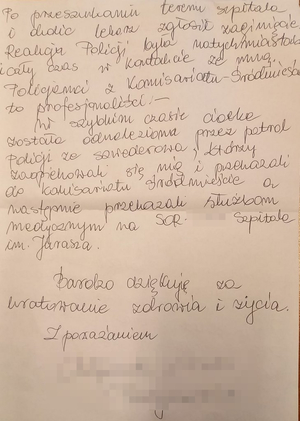 Po przeszukaniu terenu szpitala
i okolic lekarz zgłosił zaginięcie
Reakcja Policji była natychmiastowa
i cały czas w kontakcie ze mną.
Policjanci z Komisariatu-Śródmieście
to profesjonaliści.-
W szybkim czasie ciocia
została odnaleziona przez patrol
Policji ze Szwederowa, którzy
zaopiekowali się nią i przekazali
do komisariatu Śródmieście a
następnie przekazali służbom
medycznym na SOR. Szpitala
im. Jurasza.
Bardzo dziękuję za
uratowanie zdrowia i życia.
Z poważaniem